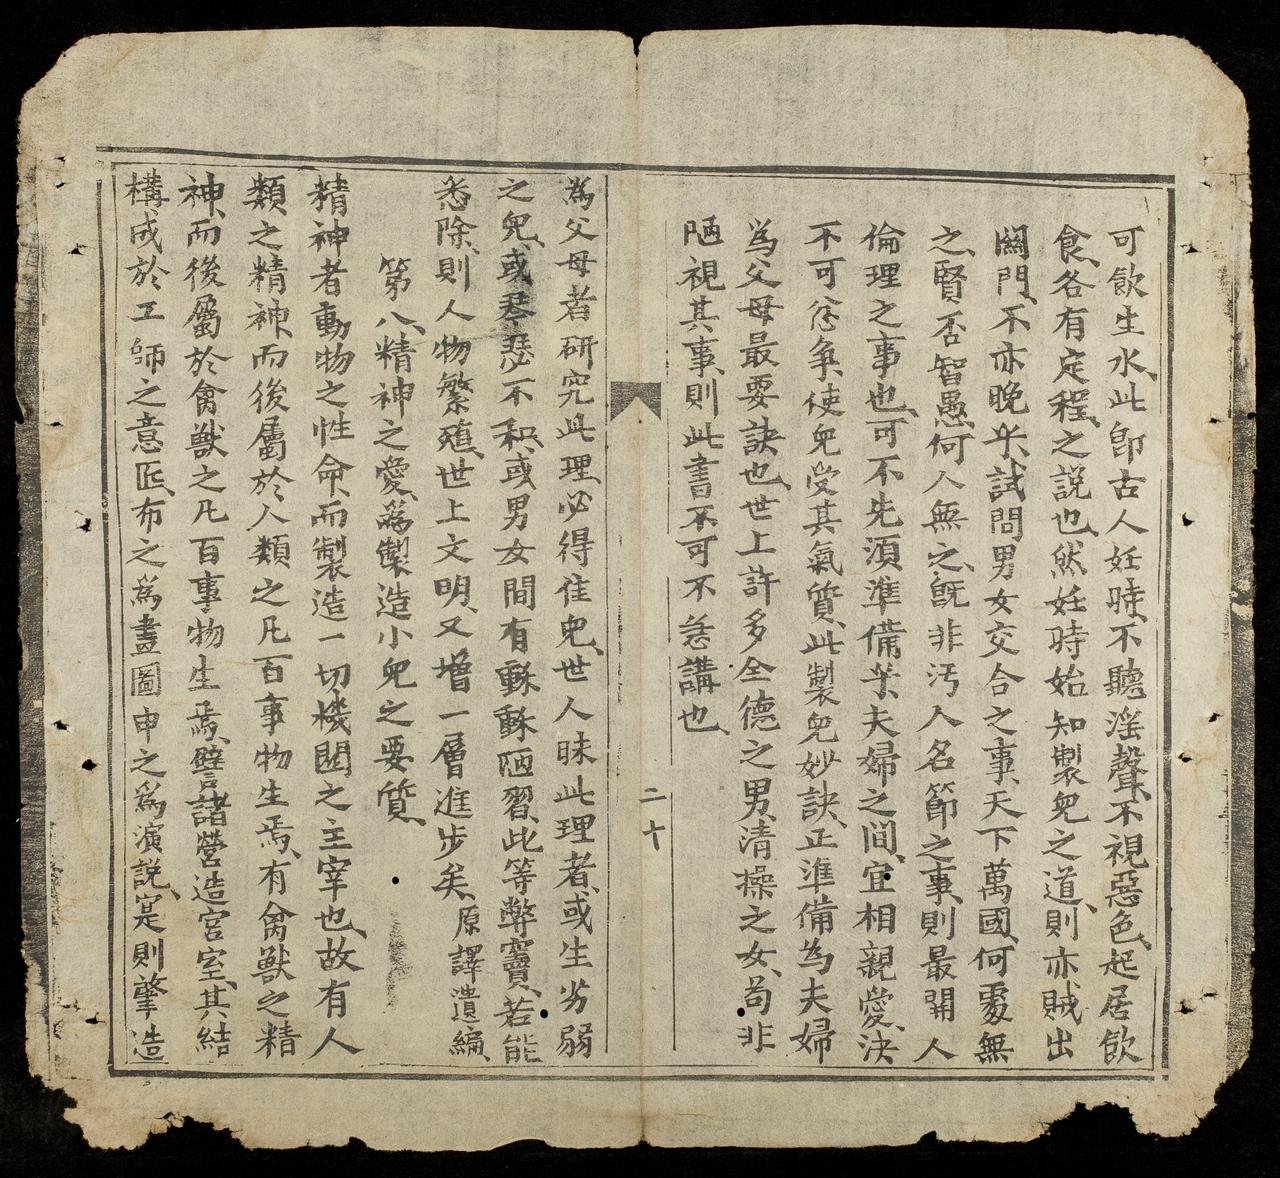 可飲生水、此卽古人妊時、不聽淫聲、不視惡色、起居飲
食、各有定程、之說也、然妊時始知製兒之道、則亦賊出
關門、不亦晚乎、試問男女交合之事、天下萬國、何處無
之、賢否智愚、何人無之、旣非污人名節之事、則最關人
倫理之事也、可不先須準備乎、夫婦之間、宜相親愛、決
不可忿爭、使兒受其氣質、此製兒妙訣、正準備為夫婦
為父母最要訣也、世上許多全德之男、清操之女、苟非
陋視其事、則此書不可不急講也、
二十
為父母者研究此理、必得佳兒、世人昧此理者、或生劣弱
之兒、或琴瑟不和、或男女間有穌穌陋習、此等弊竇、若能
悉除、則人物繁殖、世上文明、又增一層進步矣、原譯遺編、
第八、精神之愛、爲製造小兒之要質、
精神者動物之性命、而製造一切機關之主宰也、故有人
類之精神、而後屬於人類之凡百事物生焉、有禽獸之精
神、而後屬於禽獸之凡百事物生焉、譬諸營造宮室、其結
構、成於工師之意匠、布之為畫圖申之爲演說、寔則肇造